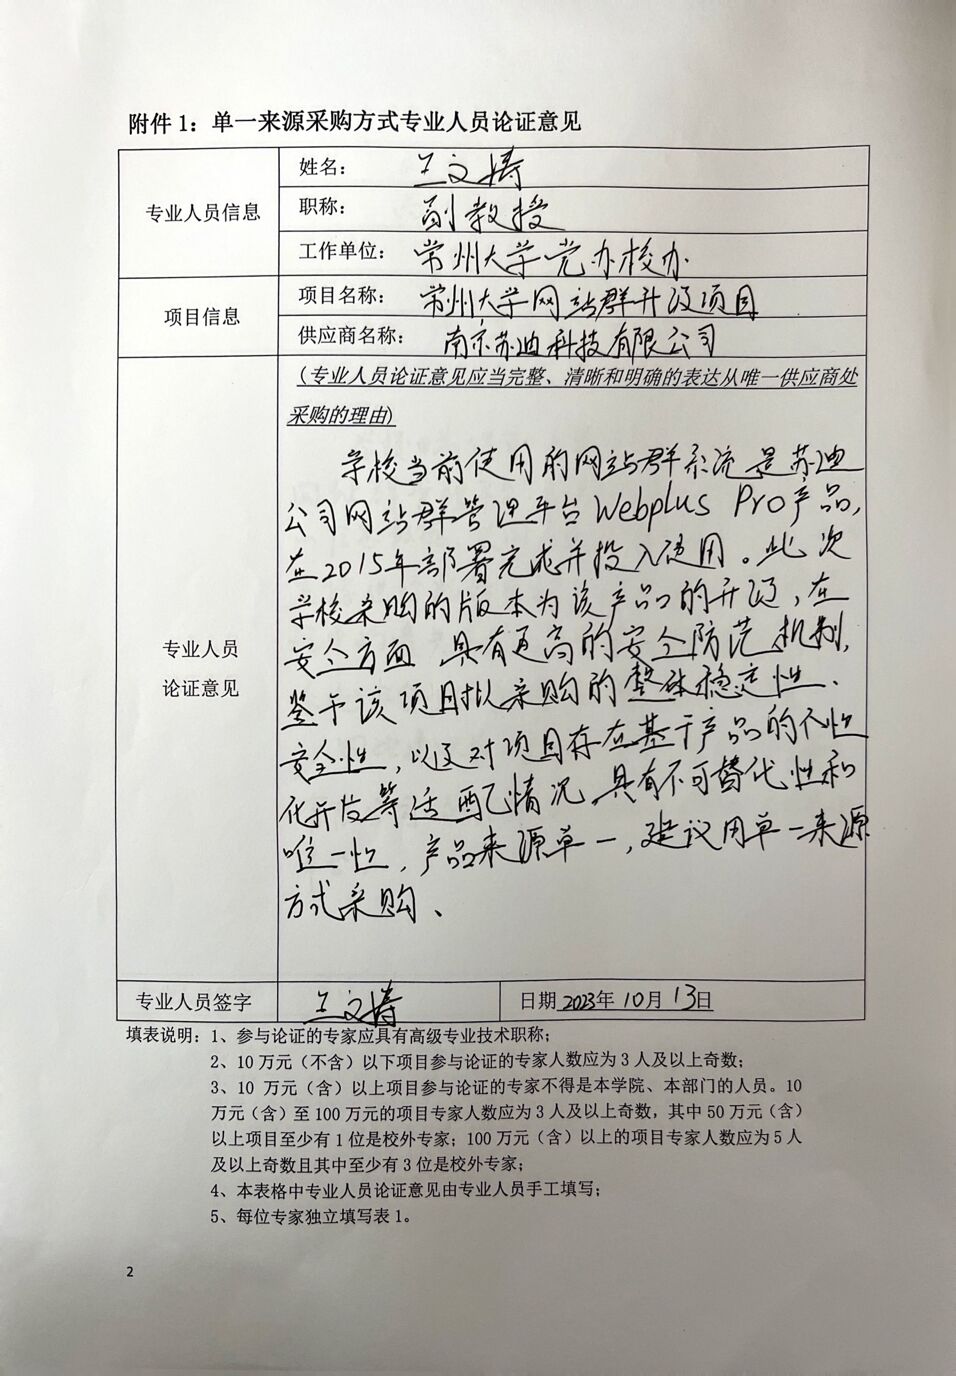 附件1：单一来源采购方式专业人员论证意见
专业人员信息
姓名： 王文涛
职称： 副教授
工作单位： 常州大学党办校办
项目信息
项目名称： 常州大学网站群升级项目
供应商名称： 南京苏迪科技有限公司
(专业人员论证意见应当完整、清晰和明确的表达从唯一供应商处
采购的理由)
专业人员
论证意见
学校当前使用的网站群系统是苏迪
公司网站群管理平台Webplus Pro产品,
在2015年部署完成并投入使用。此次
学校采购的版本为该产品的升级,在
安全方面 具有更高的安全防范机制,
鉴于该项目拟采购的整体稳定性、
安全性,以及对项目存在基于产品的个性
化开发等适配情况,具有不可替代性和
唯一性,产品来源单一,建议用单一来源
方式采购、
专业人员签字 王文涛 日期 2023年10月13日
填表说明：1、参与论证的专家应具有高级专业技术职称；
2、10万元（不含）以下项目参与论证的专家人数应为3人及以上奇数；
3、10 万元（含）以上项目参与论证的专家不得是本学院、本部门的人员。10
万元（含）至100万元的项目专家人数应为3人及以上奇数，其中50万元（含）
以上项目至少有1位是校外专家；100万元（含）以上的项目专家人数应为5人
及以上奇数且其中至少有3位是校外专家；
4、本表格中专业人员论证意见由专业人员手工填写；
5、每位专家独立填写表1。
2